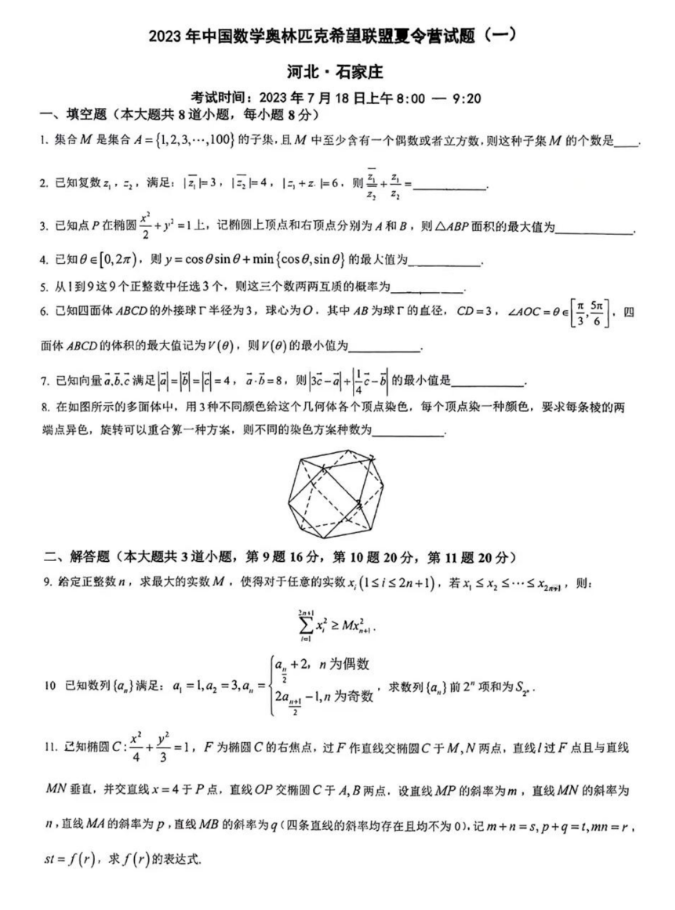 2023 年中国数学奥林匹克希望联盟夏令营试题（一）
河北·石家庄
考试时间：2023 年 7 月 18 日上午 8:00 — 9:20
一、填空题（本大题共 8 道小题，每小题 8 分）
1. 集合 M 是集合 A={1,2,3,⋯,100} 的子集，且 M 中至少含有一个偶数或者立方数，则这种子集 M 的个数是____.
2. 已知复数 z₁，z₂，满足：|z̅₁|=3，|z̅₂|=4，|z₁+z |=6，则 z̅₁/z₂ + z₁/z̅₂ =________.
3. 已知点 P 在椭圆 x²/2+y²=1 上，记椭圆上顶点和右顶点分别为 A 和 B，则 △ABP 面积的最大值为________.
4. 已知 θ∈[0,2π)，则 y=cosθsinθ+min{cosθ,sinθ} 的最大值为________.
5. 从 1 到 9 这 9 个正整数中任选 3 个，则这三个数两两互质的概率为________.
6. 已知四面体 ABCD 的外接球 Γ 半径为 3，球心为 O，其中 AB 为球 Γ 的直径，CD=3，∠AOC=θ∈[π/3, 5π/6]，四
面体 ABCD 的体积的最大值记为 V(θ)，则 V(θ) 的最小值为________.
7. 已知向量 a⃗,b⃗,c⃗ 满足 |a⃗|=|b⃗|=|c⃗|=4，a⃗·b⃗=8，则 |3c⃗-a⃗|+|1/4 c⃗-b⃗| 的最小值是________.
8. 在如图所示的多面体中，用 3 种不同颜色给这个几何体各个顶点染色，每个顶点染一种颜色，要求每条棱的两
端点异色，旋转可以重合算一种方案，则不同的染色方案种数为________.
二、解答题（本大题共 3 道小题，第 9 题 16 分，第 10 题 20 分，第 11 题 20 分）
9. 给定正整数 n，求最大的实数 M，使得对于任意的实数 xᵢ(1≤i≤2n+1)，若 x₁≤x₂≤⋯≤x₂ₙ₊₁，则：
∑_{i=1}^{2n+1} xᵢ² ≥ Mx²ₙ₊₁.
10 已知数列{aₙ}满足：a₁=1,a₂=3,aₙ={a_{n/2}+2，n 为偶数; 2a_{(n+1)/2}-1,n 为奇数，求数列{aₙ}前 2ⁿ 项和为 S_{2ⁿ}.
11. 已知椭圆 C: x²/4+y²/3=1，F 为椭圆 C 的右焦点，过 F 作直线交椭圆 C 于 M,N 两点，直线 l 过 F 点且与直线
MN 垂直，并交直线 x=4 于 P 点，直线 OP 交椭圆 C 于 A,B 两点．设直线 MP 的斜率为 m，直线 MN 的斜率为
n，直线 MA 的斜率为 p，直线 MB 的斜率为 q（四条直线的斜率均存在且均不为 0）．记 m+n=s, p+q=t, mn=r，
st=f(r)，求 f(r) 的表达式.